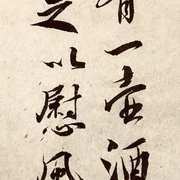 有一壶酒
足以慰風